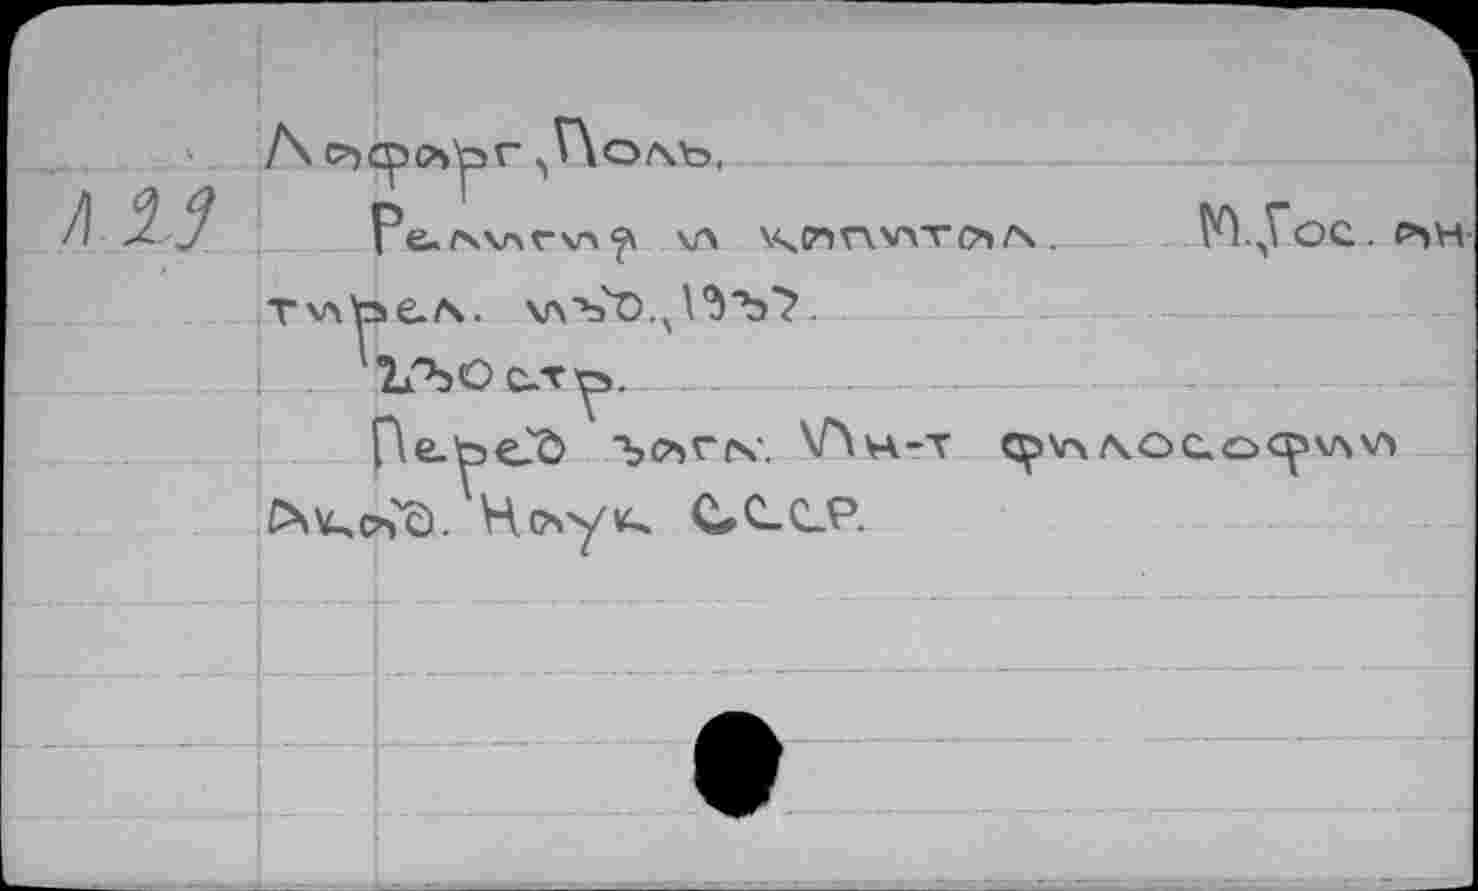 Л 29
Лафарг, Поль.
Религия и капитал. М., Гос. ан-
тирел. изд., 1937.
230 стр.
Перед загл: Ин-т философии
Акад. Наук С.С.С.Р.